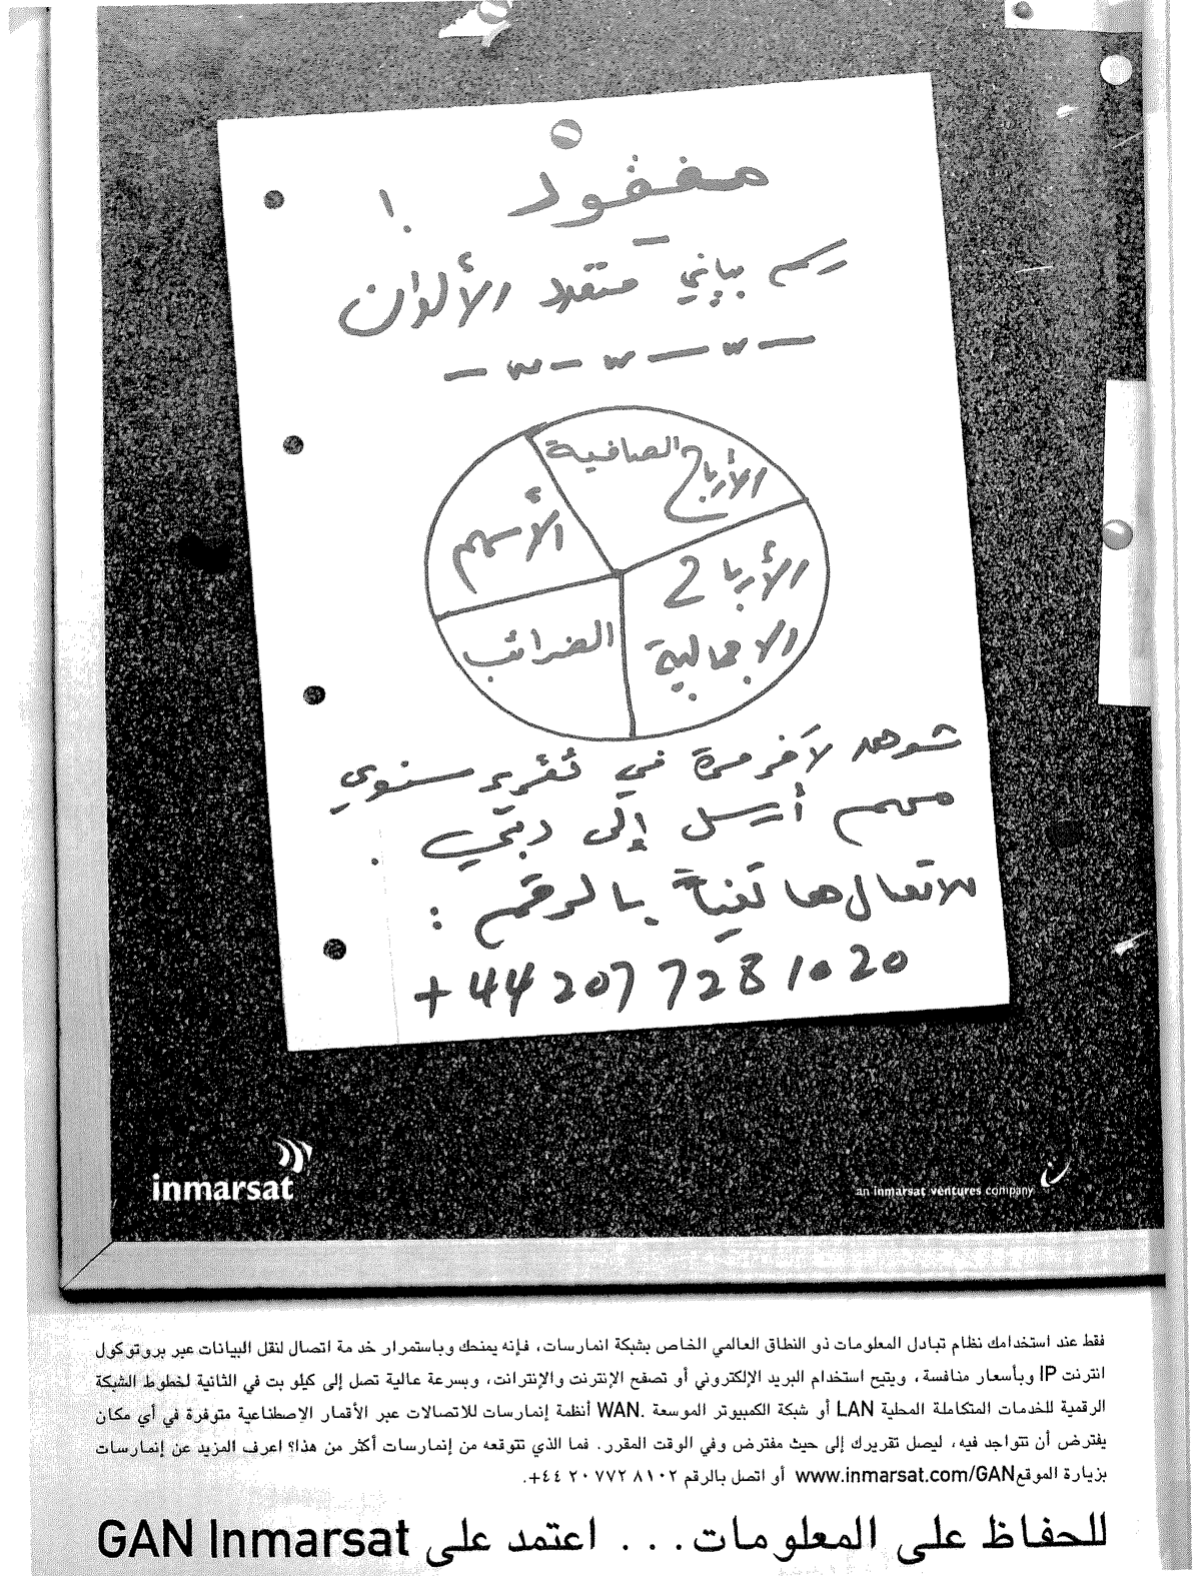 مفقود !
رسم بياني متعدد الألوان
الأرباح الصافية
الأسهم
الأرباح
الاجمالية
الضرائب
شوهد لآخر مرة في تقرير سنوي
مهم أرسل إلى دبي .
للاتصال هاتفياً بالرقم :
+44 207 728 1020
inmarsat
an inmarsat ventures company
فقط عند استخدامك نظام تبادل المعلومات ذو النطاق العالمي الخاص بشبكة انمارسات، فإنه يمنحك وباستمرار خدمة اتصال لنقل البيانات عبر بروتوكول
انترنت IP وبأسعار منافسة، ويتيح استخدام البريد الإلكتروني أو تصفح الإنترنت والإنترانت، وبسرعة عالية تصل إلى كيلو بت في الثانية لخطوط الشبكة
الرقمية للخدمات المتكاملة المحلية LAN أو شبكة الكمبيوتر الموسعة .WAN أنظمة إنمارسات للاتصالات عبر الأقمار الإصطناعية متوفرة في أي مكان
يفترض أن تتواجد فيه، ليصل تقريرك إلى حيث مفترض وفي الوقت المقرر. فما الذي تتوقعه من إنمارسات أكثر من هذا؟ اعرف المزيد عن إنمارسات
بزيارة الموقع www.inmarsat.com/GAN أو اتصل بالرقم ٨١٠٢ ٧٧٢ ٢٠ ٤٤+.
للحفاظ على المعلومات... اعتمد على GAN Inmarsat